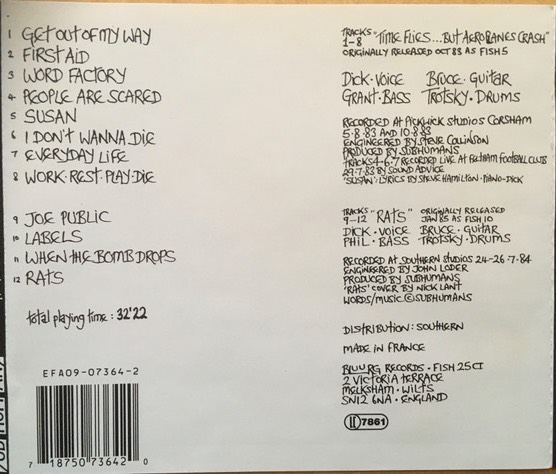 1 GET OUT OF MY WAY
2 FIRST AID
3 WORD FACTORY
4 PEOPLE ARE SCARED
5 SUSAN
6 I DON'T WANNA DIE
7 EVERYDAY LIFE
8 WORK·REST·PLAY·DIE
9 JOE PUBLIC
10 LABELS
11 WHEN THE BOMB DROPS
12 RATS
total playing time: 32'22
EFA09-07364-2
7 18750 73642 0
TRACKS 1-8 "TIME FLIES...BUT AEROPLANES CRASH"
ORIGINALLY RELEASED OCT 83 AS FISH 5
DICK·VOICE BRUCE·GUITAR
GRANT·BASS TROTSKY·DRUMS
RECORDED AT PICKWICK STUDIOS CORSHAM
5·8·83 AND 10·8·83
ENGINEERED BY STEVE COLLINSON
PRODUCED BY SUBHUMANS
TRACKS 4·6·7 RECORDED LIVE AT FELTHAM FOOTBALL CLUB
29·7·83 BY SOUND ADVICE
'SUSAN': LYRICS BY STEVE HAMILTON·PIANO·DICK
TRACKS 9-12 "RATS" ORIGINALLY RELEASED
JAN 85 AS FISH 10
DICK·VOICE BRUCE·GUITAR
PHIL·BASS TROTSKY·DRUMS
RECORDED AT SOUTHERN STUDIOS 24-26·7·84
ENGINEERED BY JOHN LODER
PRODUCED BY SUBHUMANS
'RATS' COVER BY NICK LANT
WORDS/MUSIC © SUBHUMANS
DISTRIBUTION: SOUTHERN
MADE IN FRANCE
BLUURG RECORDS·FISH 25CD
2 VICTORIA TERRACE
MELKSHAM·WILTS
SN12 6NA·ENGLAND
7861